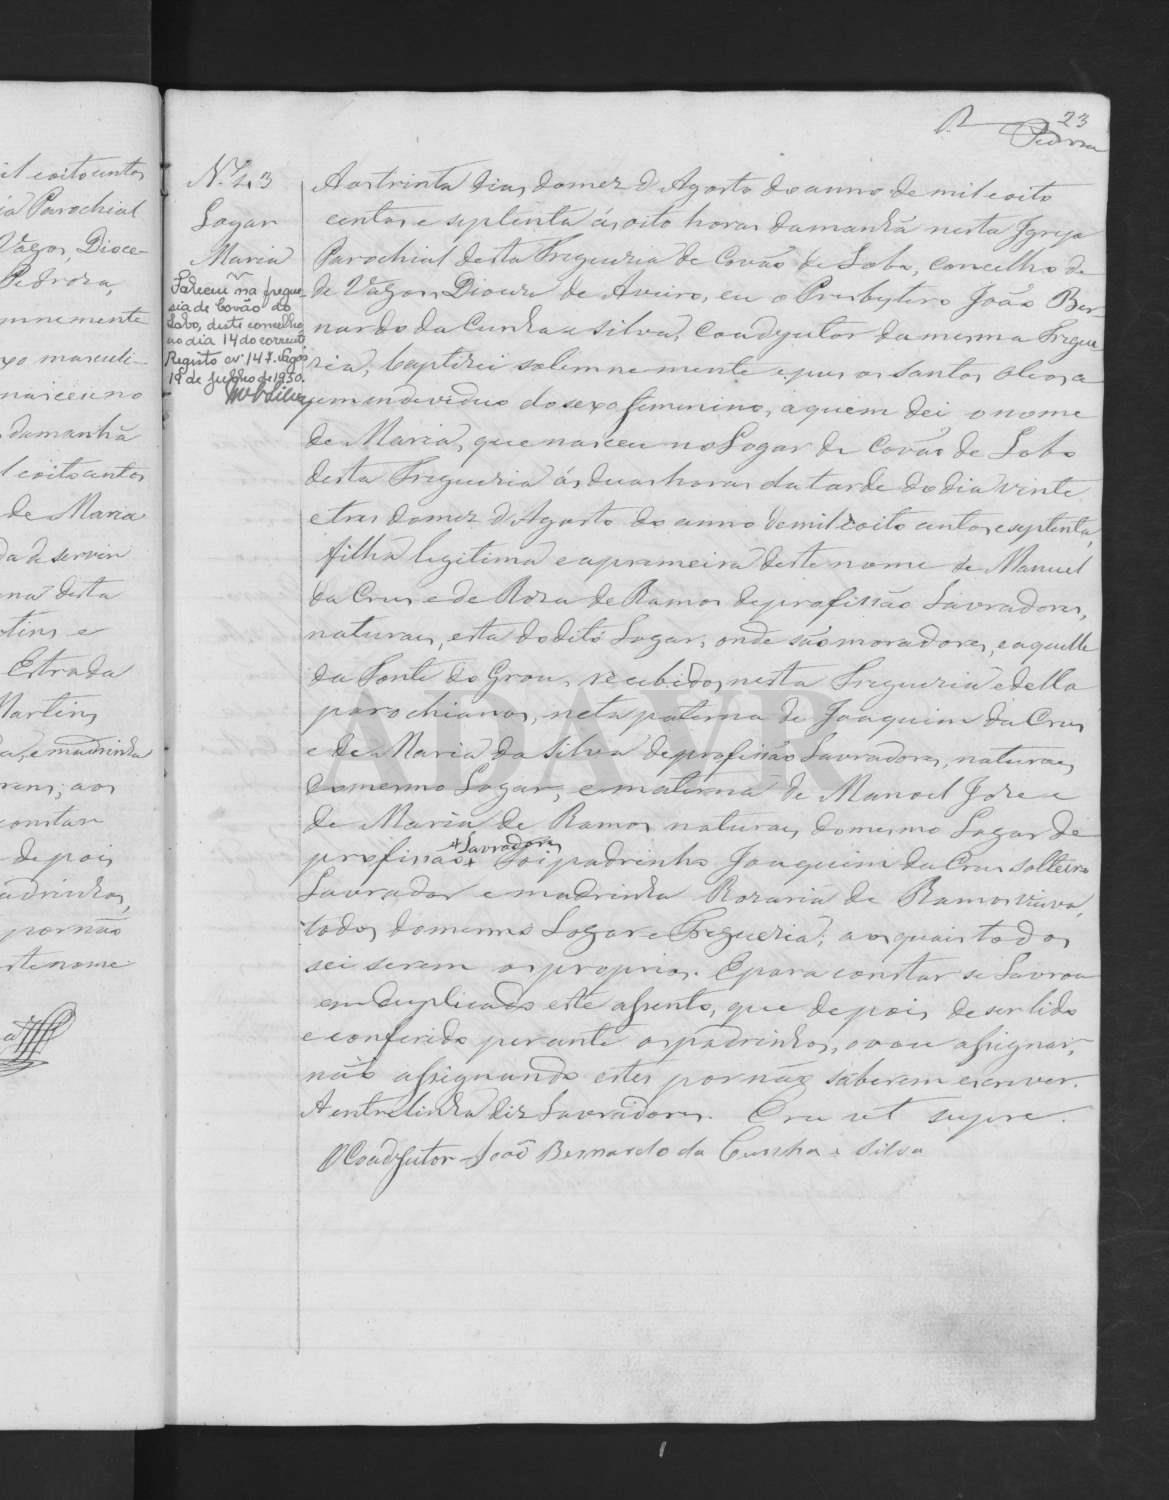 il coitocentos
ia Parochial
Vagos, Dioce-
Pedroza,
mnemente
xo masculi-
nasceu no
da manhã
l coitocentos
de Maria
da de servir
desta
tins e
Estrada
Martins
a, e madrinha
aos
constar
depois
adrinhos,
por não
ste nome
23
Pedroza
N.º 43
Logar
Maria
Faleceu na fregue-
sia de Covão do
Lobo, deste concelho
no dia 14 do corrente
Registo nº 147. Vagos
18 de Julho de 1950.
MVSilva
Aos trinta dias do mez d'Agosto do anno de mil coito
centos e septenta ás oito horas da manhã nesta Igreja
Parochial desta Fregueria de Covão de Lobo, concelho de
de Vagos, Dioceze de Aveiro, eu o Presbytero João Ber-
nardo da Cunha e Silva, Coadjutor da mesma Fregue
ria, baptizei solemnemente e pus os santos oleos a
um individuo do sexo femenino, a quem dei o nome
de Maria, que nasceu no Logar de Covão de Lobo
desta Fregueria ás duas horas da tarde do dia vinte
e tres do mez d'Agosto do anno de mil coito centos e septenta,
filha legitima e a primeira deste nome de Manuel
da Crus e de Roza de Ramos de profissão Lavradores,
naturaes, esta do dito Logar, onde são moradores, e aquelle
da Fonte do Grou, recebidos nesta Fregueria e della
parochianos, neta paterna de Joaquim da Crus
e de Maria da Silva de profissão Lavradores, naturaes
do mesmo Logar, e materna de Manoel Joze e
de Maria de Ramos naturaes do mesmo Logar de
+ Lavradores
profissão + Foi padrinho Joaquim da Crus solteiro
Lavrador e madrinha Rozaria de Ramos viuva,
todos do mesmo Logar e Fregueria; aos quais todos
sei serem os proprios. E para constar se Lavrou
em duplicado este assento, que depois de ser lido
e conferido perante os padrinhos, o vou assignar,
não assignando estes por não saberem escrever.
A entrelinha diz Lavradores. Era ut supra.
O Coadjutor João Bernardo da Cunha e Silva
ADAVR